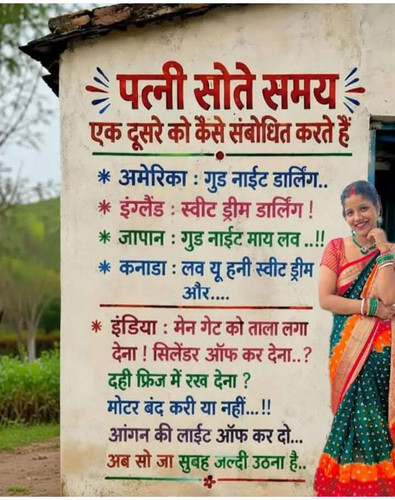 पत्नी सोते समय
एक दूसरे को कैसे संबोधित करते हैं
* अमेरिका : गुड नाईट डार्लिंग..
* इंग्लैंड : स्वीट ड्रीम डार्लिंग !
* जापान : गुड नाईट माय लव ..!!
* कनाडा : लव यू हनी स्वीट ड्रीम
और....
* इंडिया : मेन गेट को ताला लगा
देना ! सिलेंडर ऑफ कर देना..?
दही फ्रिज में रख देना ?
मोटर बंद करी या नहीं...!!
आंगन की लाईट ऑफ कर दो...
अब सो जा सुबह जल्दी उठना है..